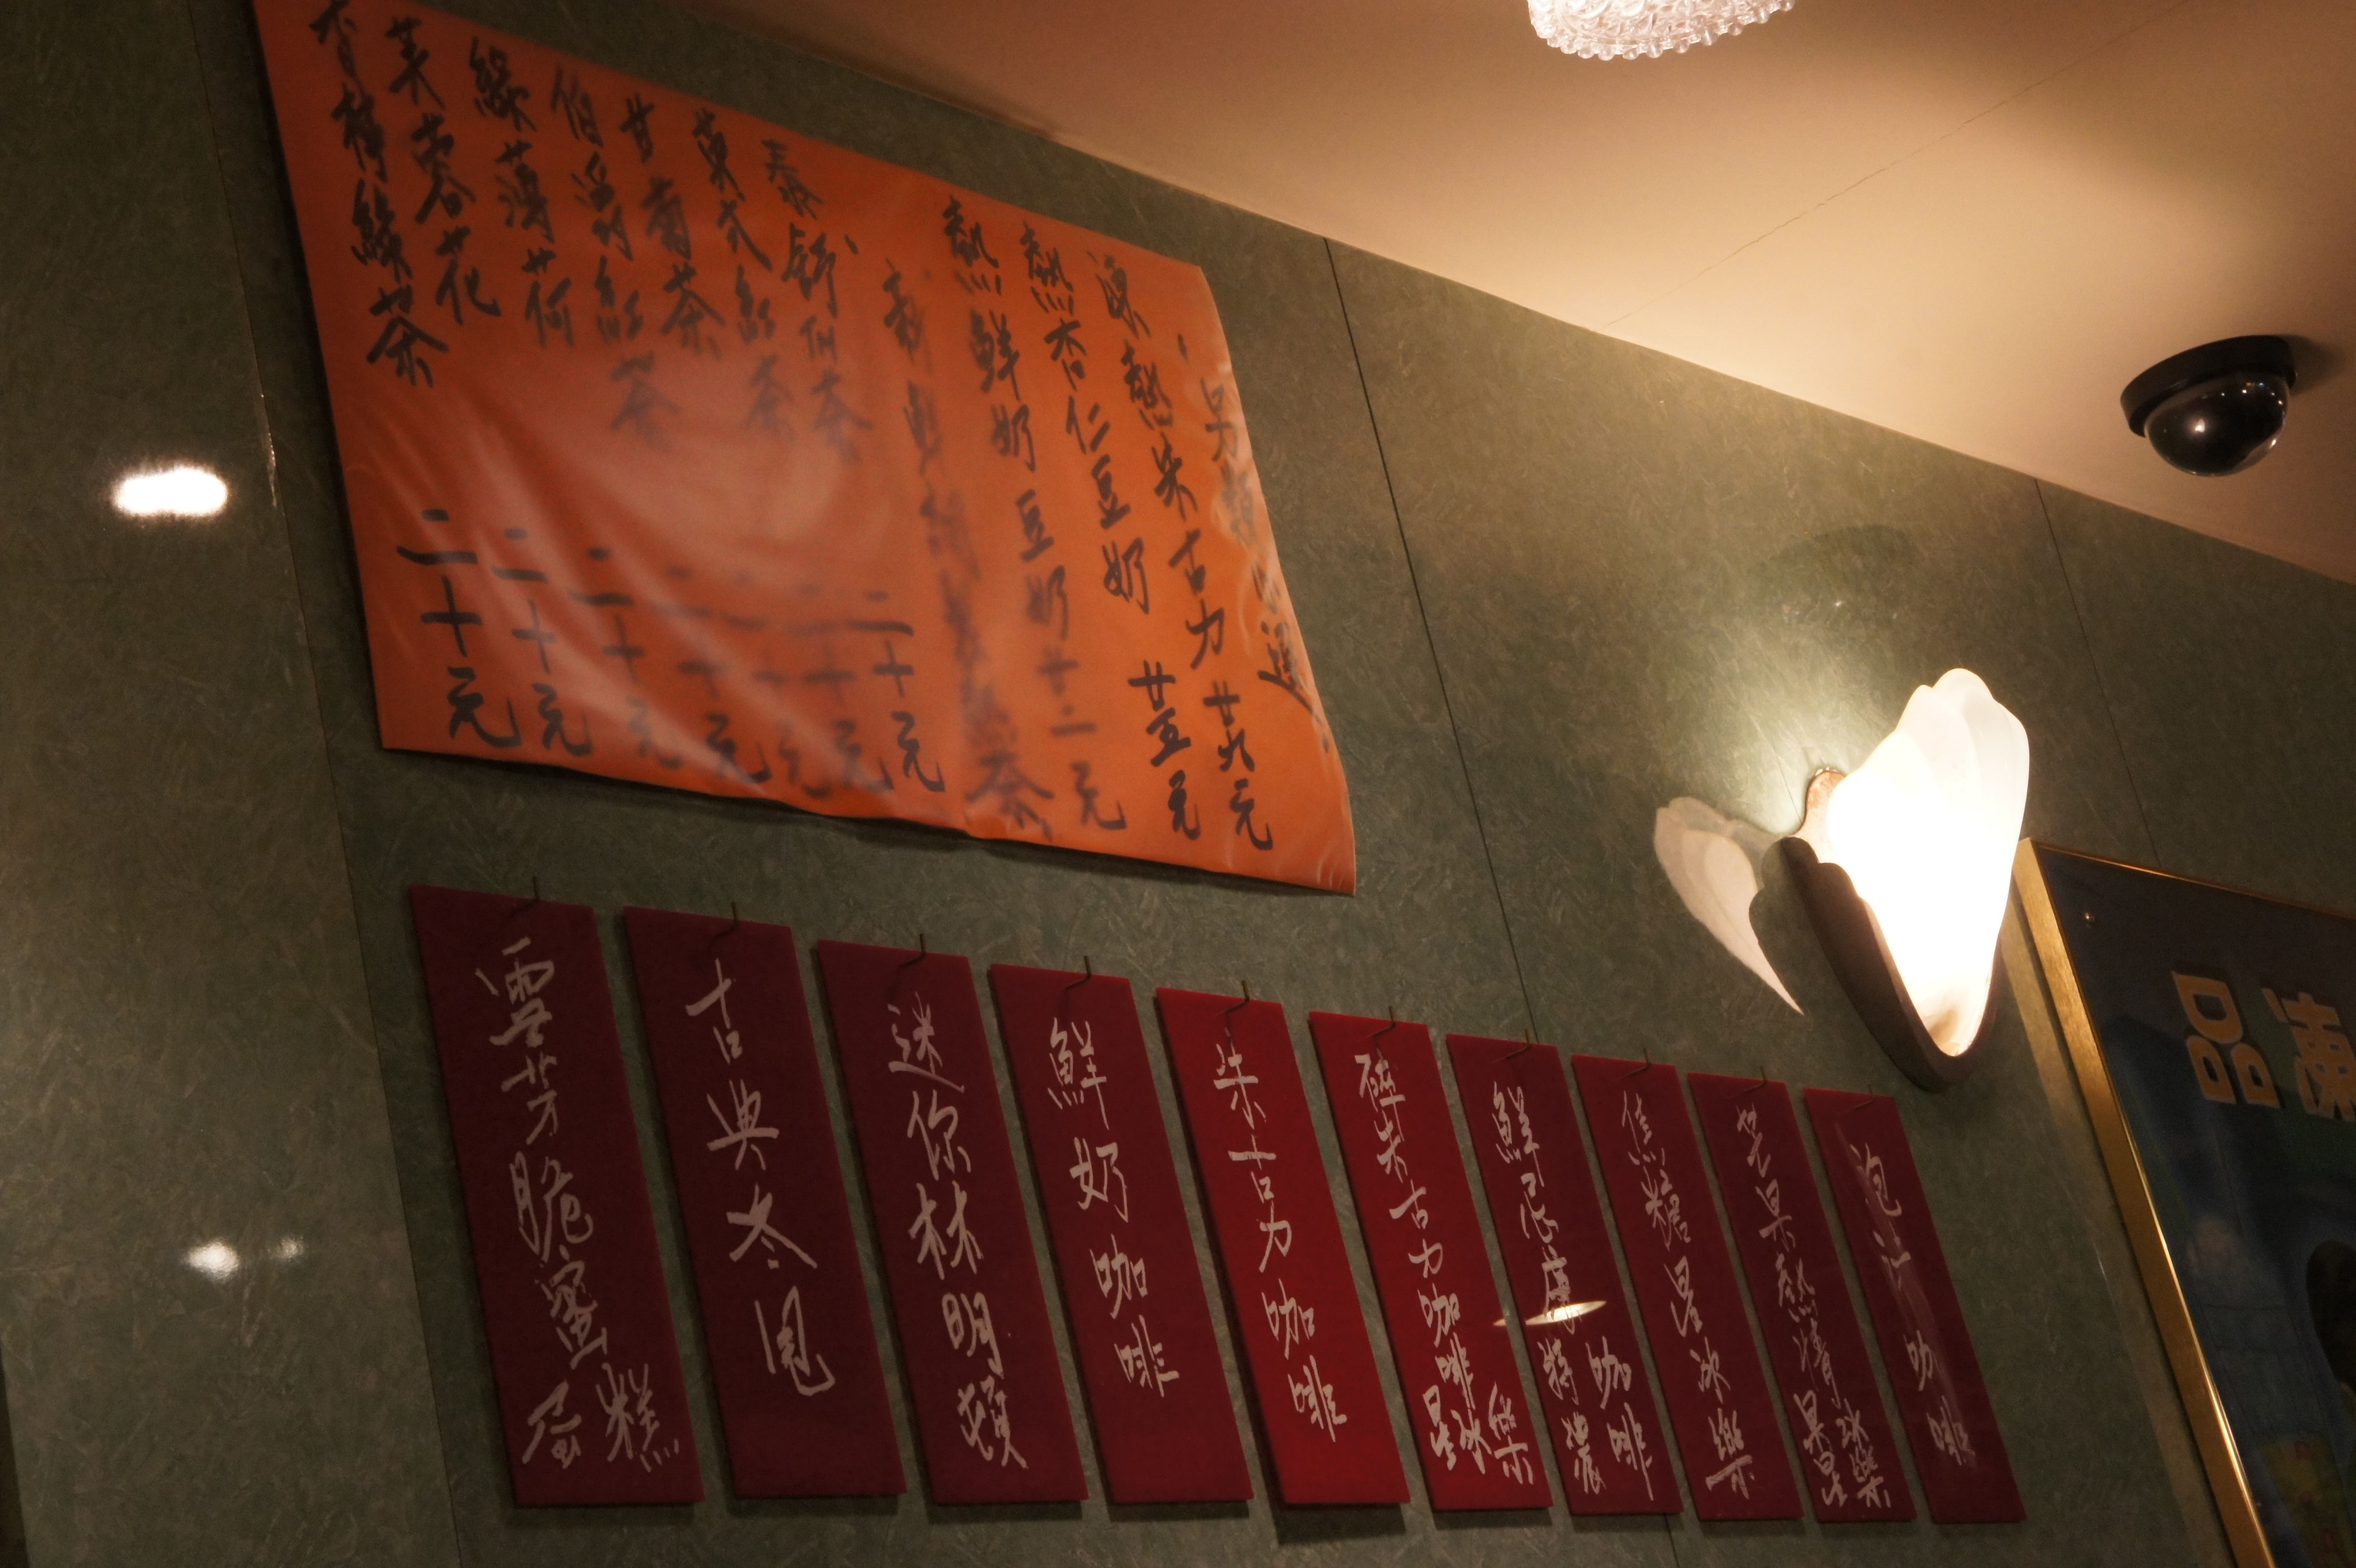 凍熱朱古力 廿八元
熱杏仁豆奶 廿五元
熱鮮奶豆奶 廿二元
二十元
英式紅茶 二十元
甘菊茶 二十元
伯爵紅茶 二十元
綠薄荷 二十元
芙蓉花 二十元
綠茶 二十元
咖啡
芒果熱情果星冰樂
焦糖星冰樂
鮮忌廉特濃咖啡
碎朱古力咖啡星冰樂
朱古力咖啡
鮮奶咖啡
迷你林明頓
古典冬甩
雪芳脆蜜蛋糕
品凍